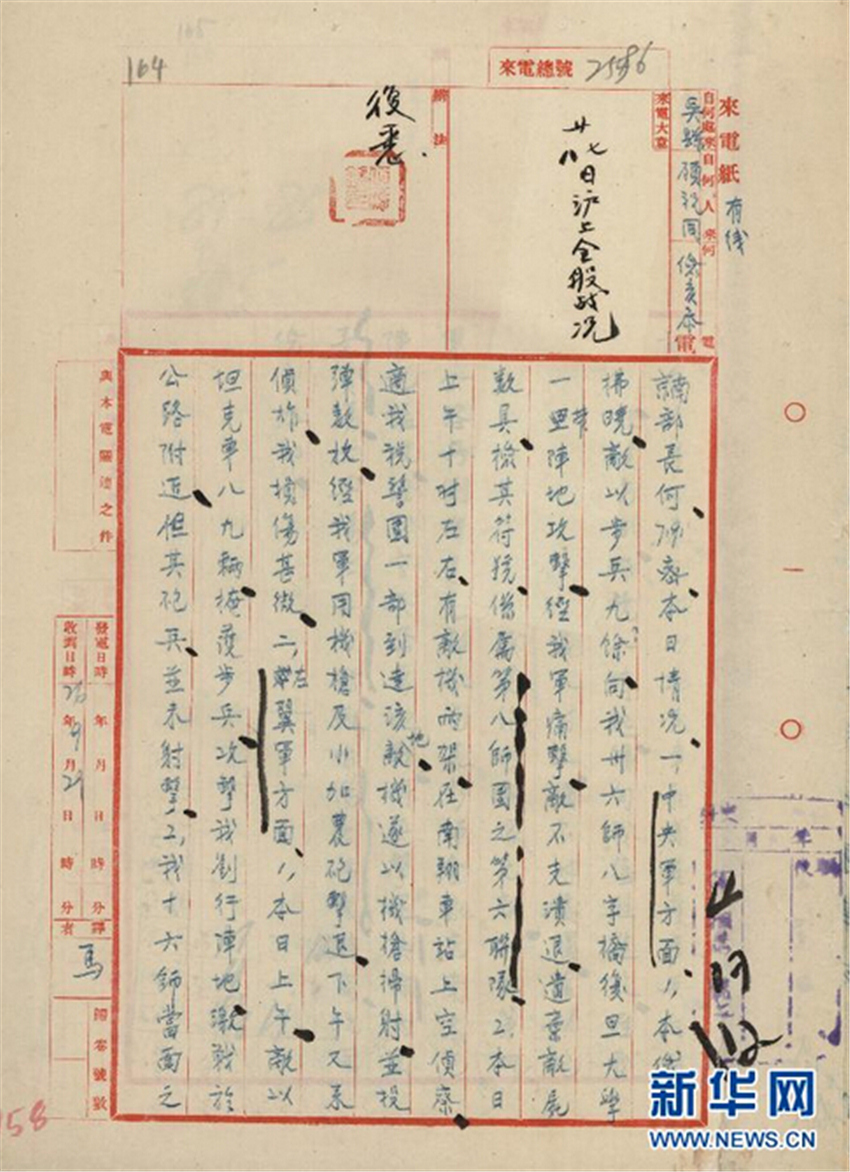 164
來電總號 2586
來電紙 有线
自何處來自何人來何電
吳縣顧祝同
來電大意
廿七八日沪上全般战况
辦法
後悉.
南京部長何 本日情况一,中央軍方面1,本
拂曉敵以步兵九余向我卅六師八字橋復旦大學
一帶陣地攻擊經我軍痛擊敵不支潰退遺棄敵屍
数具檢其符號係屬第八師團之第六聯隊2.本日
上午十时左右有敵機兩架在南翔車站上空侦察
適我税警團一部到達該地敵機遂以機搶掃射並投
彈数枚經我軍用機槍及小加農砲擊退下午又来
偵炸我損傷甚微二,左翼軍方面1,本日上午敵以
坦克車八九輛掩護步兵攻擊我劉行陣地激戰於
公路附近但其砲兵並未射擊2,我十六師當面之
與本電關連之件
發電日時 年 月 日 時 分
收到日時 26年9月29日 時 分
譯者 馬
歸卷號數
○一○
58
新华网
WWW.NEWS.CN